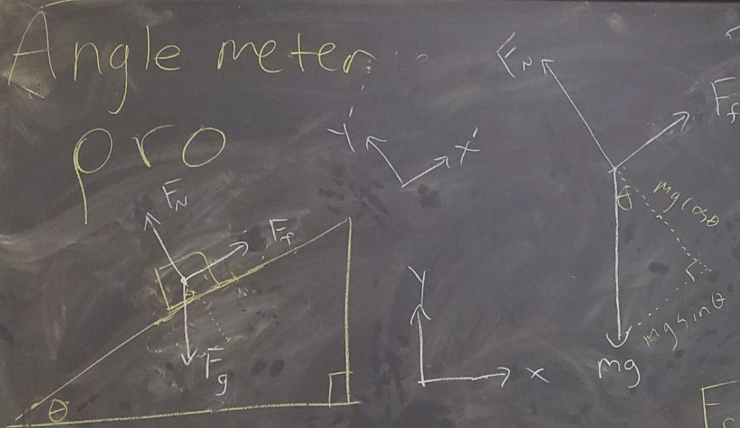 Angle meter
pro
F_N
F_f
F_g
θ
Y'
X'
Y
x
F_N
F_f
θ
mg cosθ
mg sinθ
mg